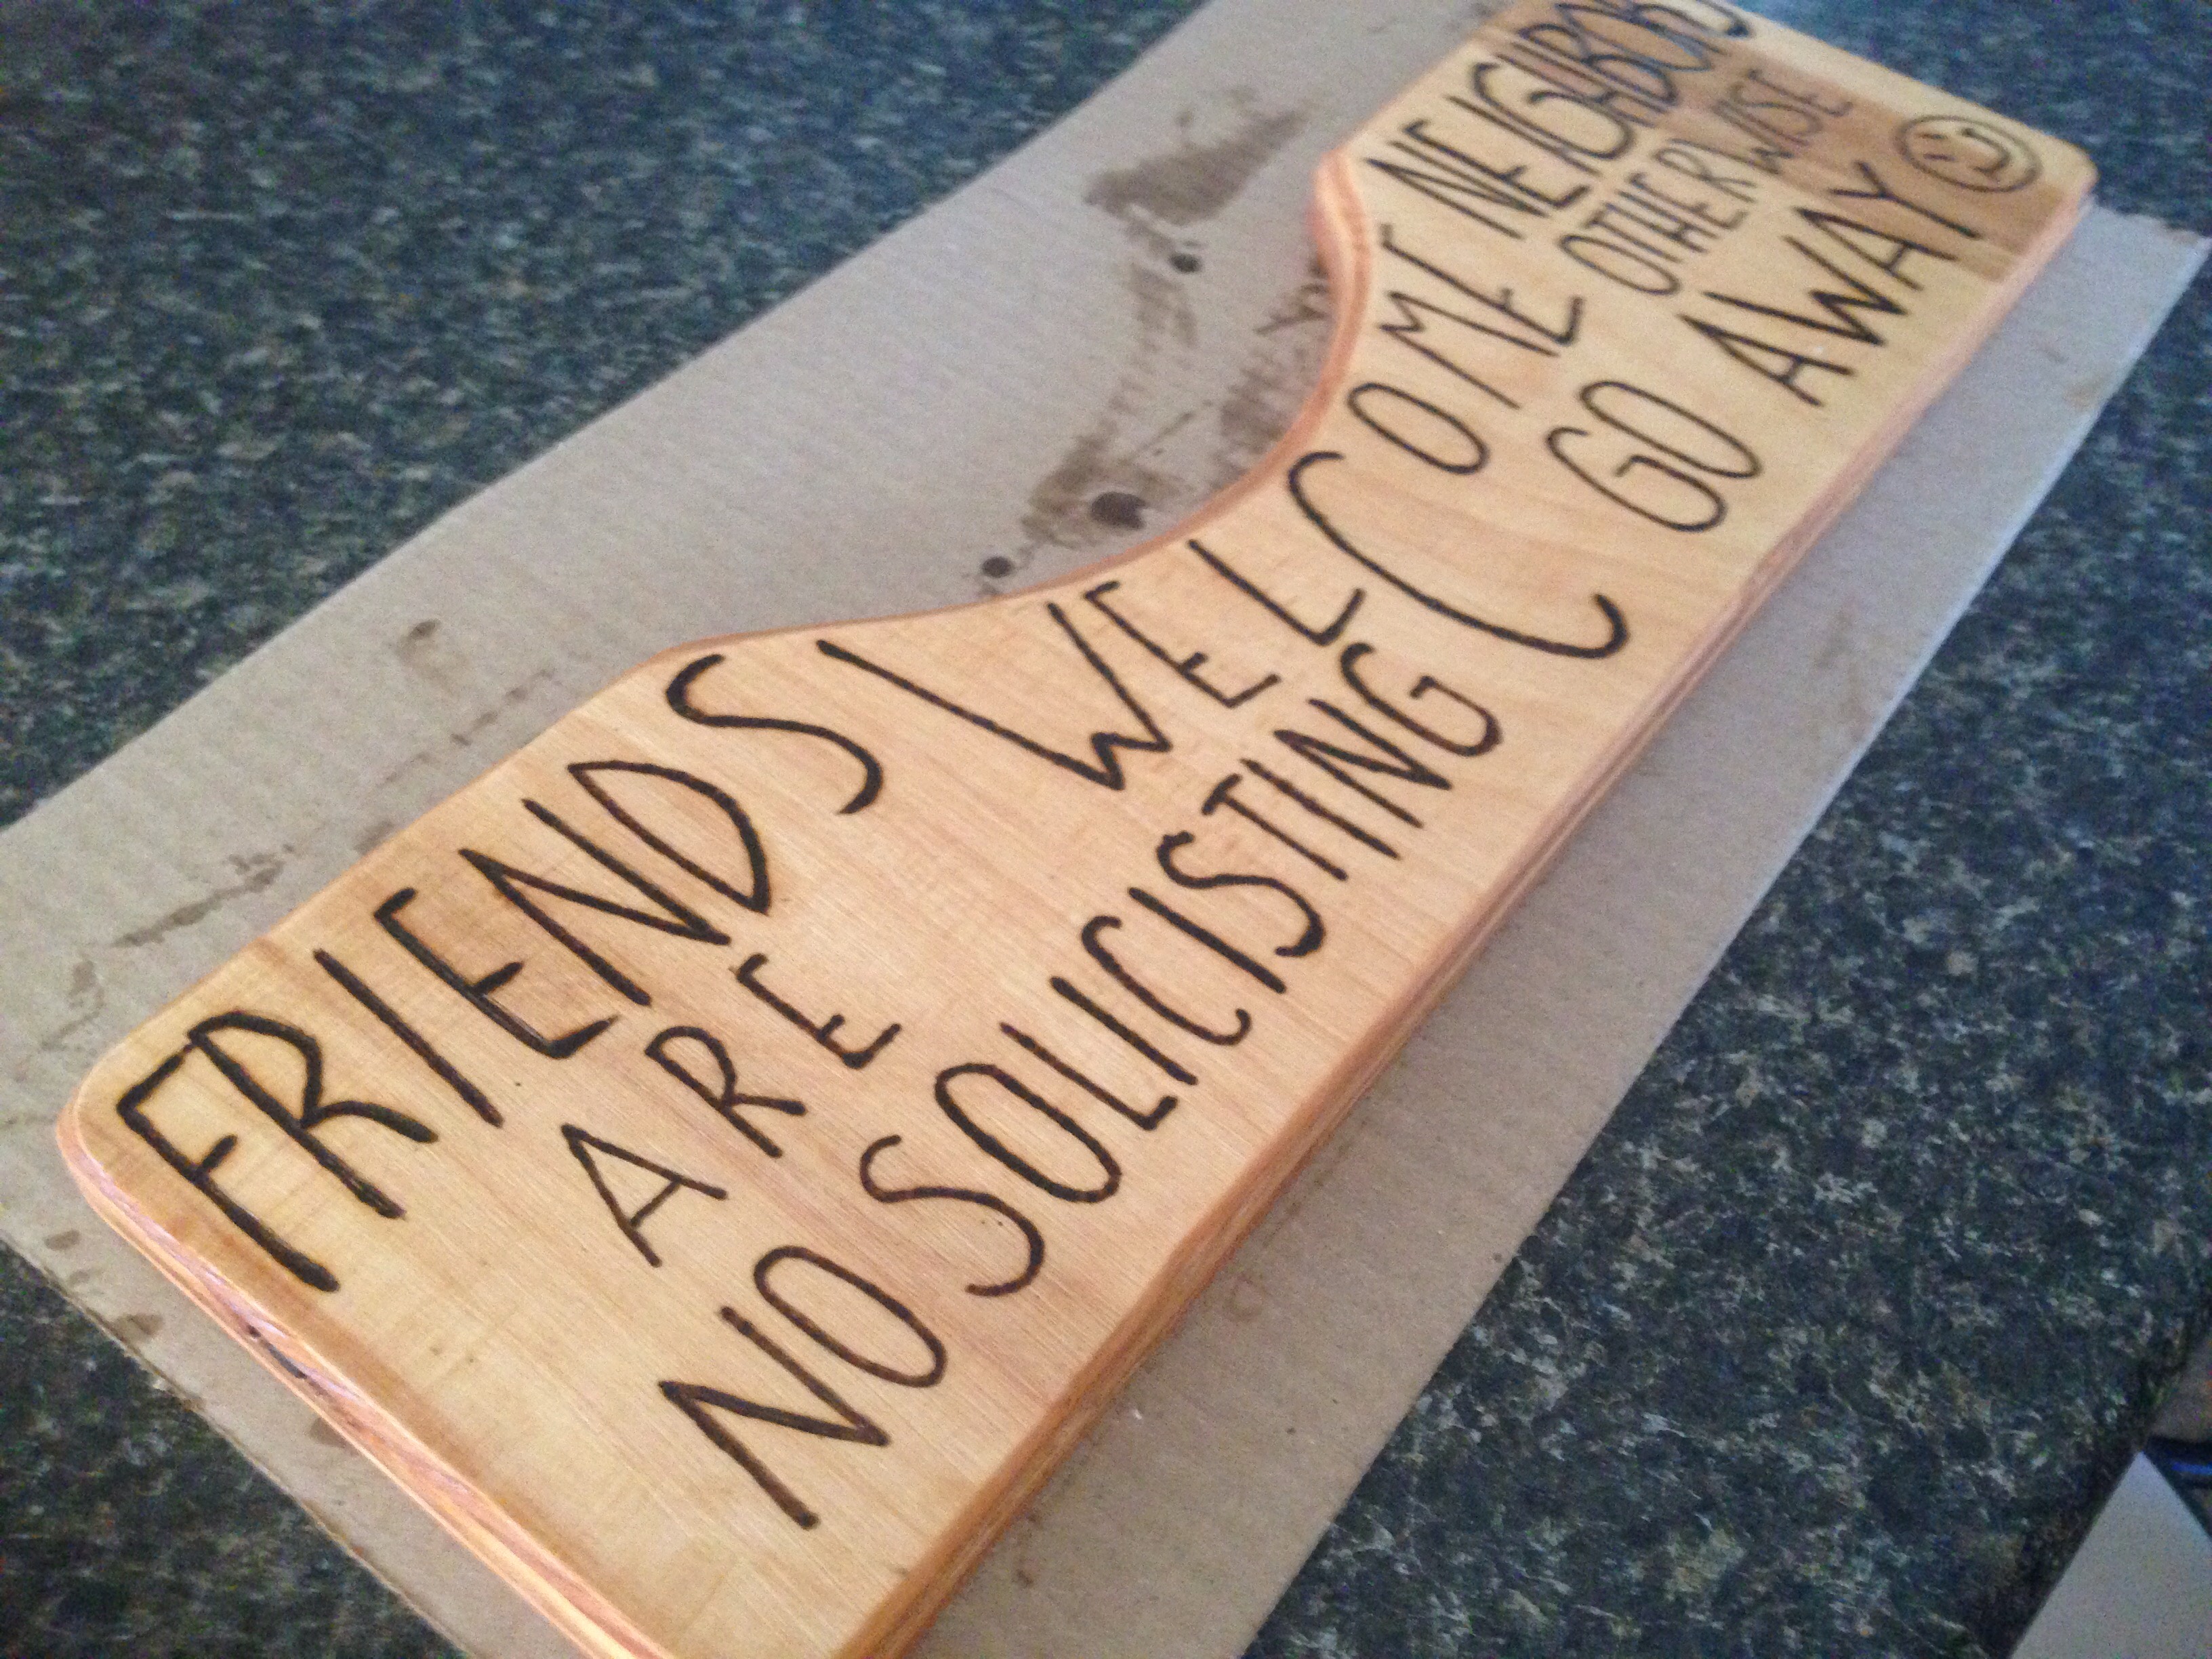 FRIENDS WELCOME NEIGHBORS
ARE OTHERWISE
NO SOLICISTING GO AWAY